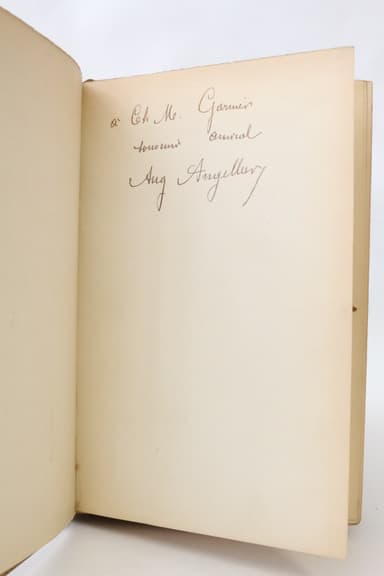 à Ch. M. Garnier
souvenir amical
Aug Angellier